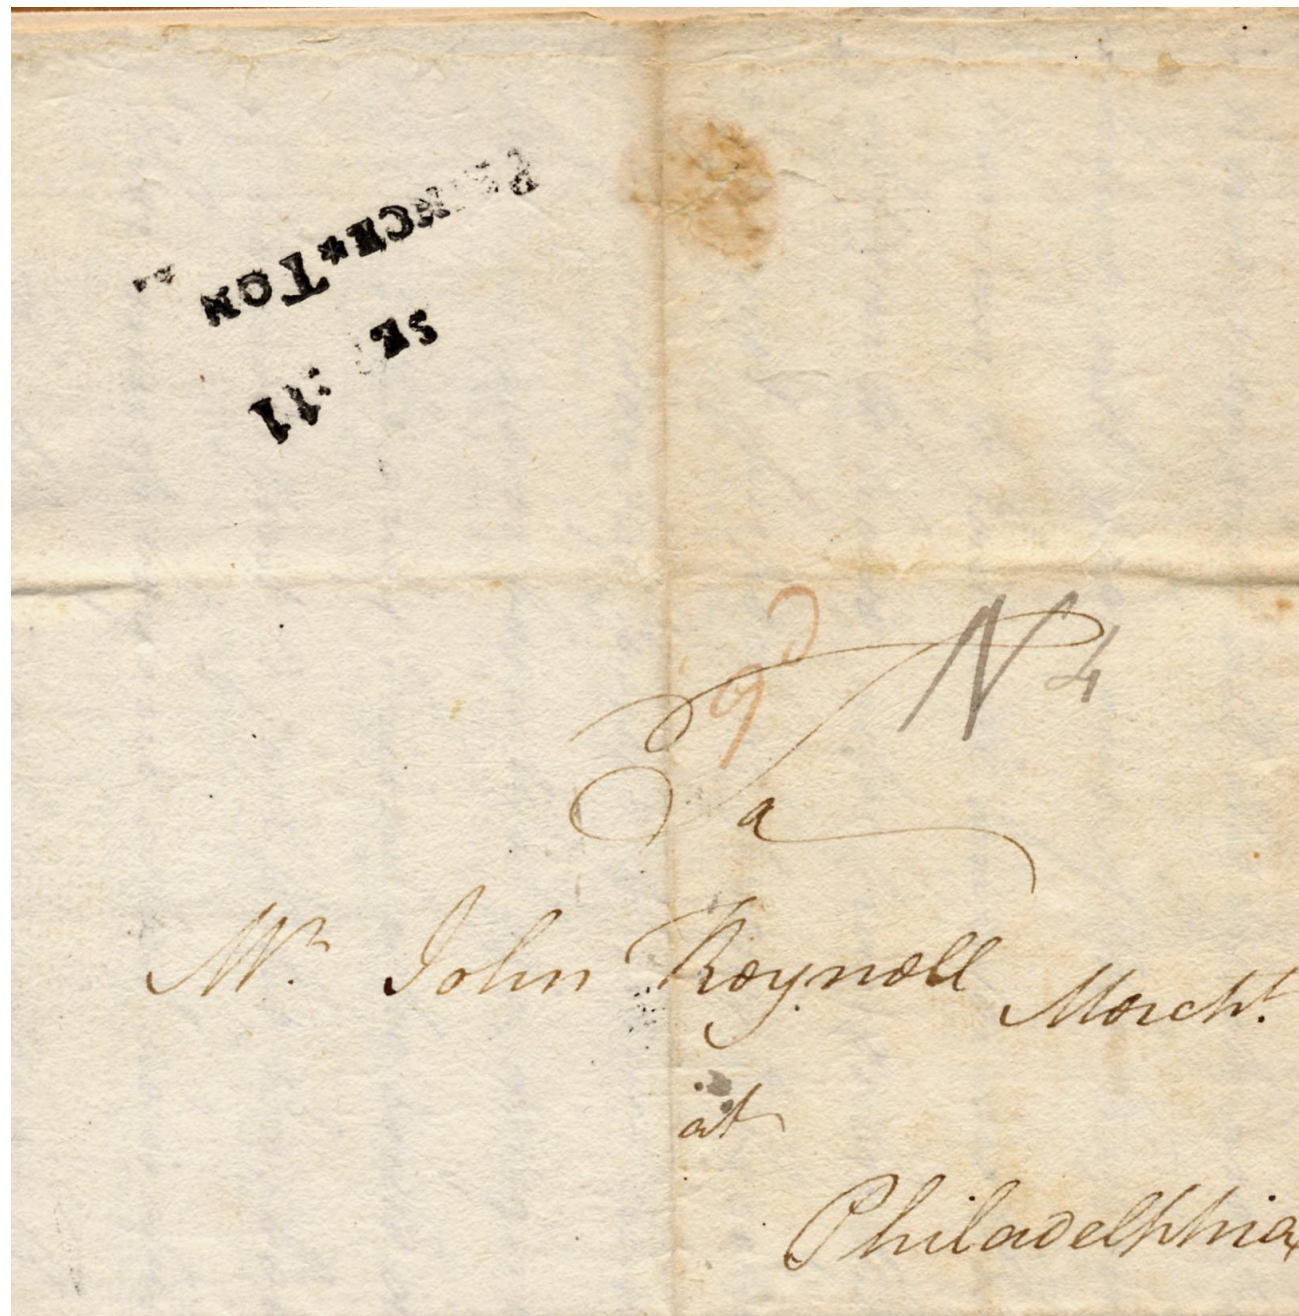 PRINCE*TON
SEP:11
9d
N 4
To
Mr. John Reynell Mercht.
at
Philadelphia